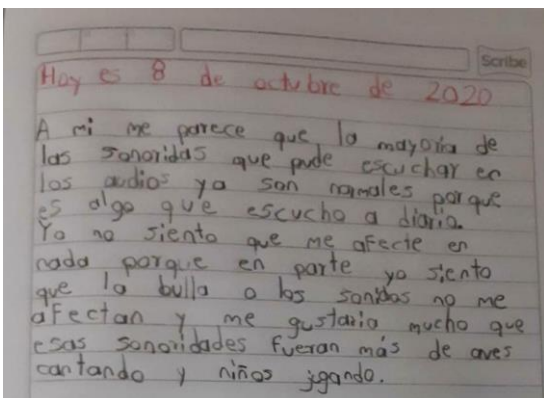 Scribe
Hoy es 8 de octubre de 2020
A mi me parece que la mayoria de
las sonoridas que pude escuchar en
los audios ya son normales porque
es algo que escucho a diario.
Yo no siento que me afecte en
nada porque en parte yo siento
que la bulla o los sonidos no me
afectan y me gustaria mucho que
esas sonoridades fueran más de aves
cantando y niños jgando.